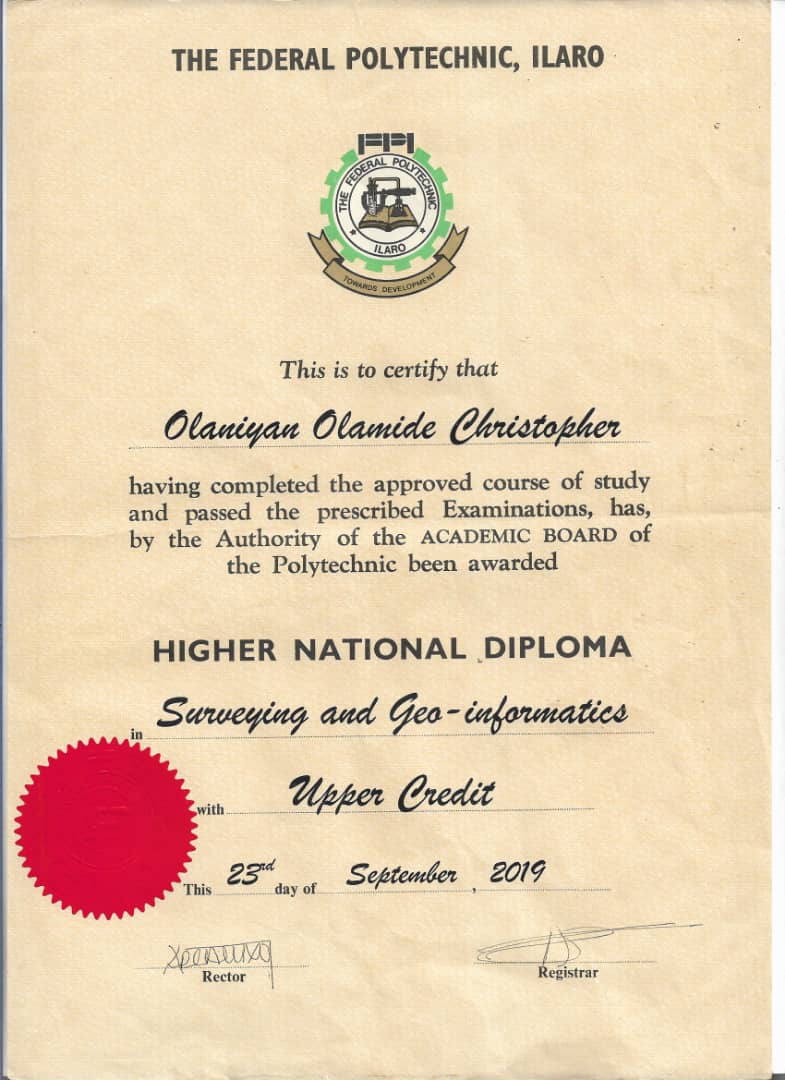 THE FEDERAL POLYTECHNIC, ILARO
FPI
THE FEDERAL POLYTECHNIC
ILARO
TOWARDS DEVELOPMENT
This is to certify that
Olaniyan Olamide Christopher
having completed the approved course of study
and passed the prescribed Examinations, has,
by the Authority of the ACADEMIC BOARD of
the Polytechnic been awarded
HIGHER NATIONAL DIPLOMA
in Surveying and Geo-informatics
with Upper Credit
This 23rd day of September, 2019
Rector
Registrar